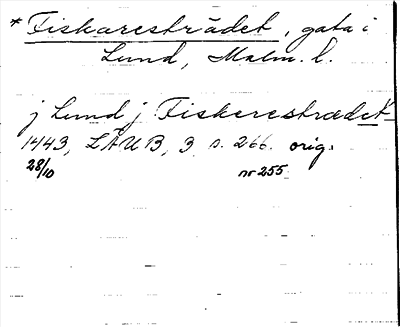 * Fiskaresträdet, gata i
Lund, Malm. l.
j Lund j Fiskerestrædet
1443, LÄUB, 3 s. 266. orig.
28/10 nr 255